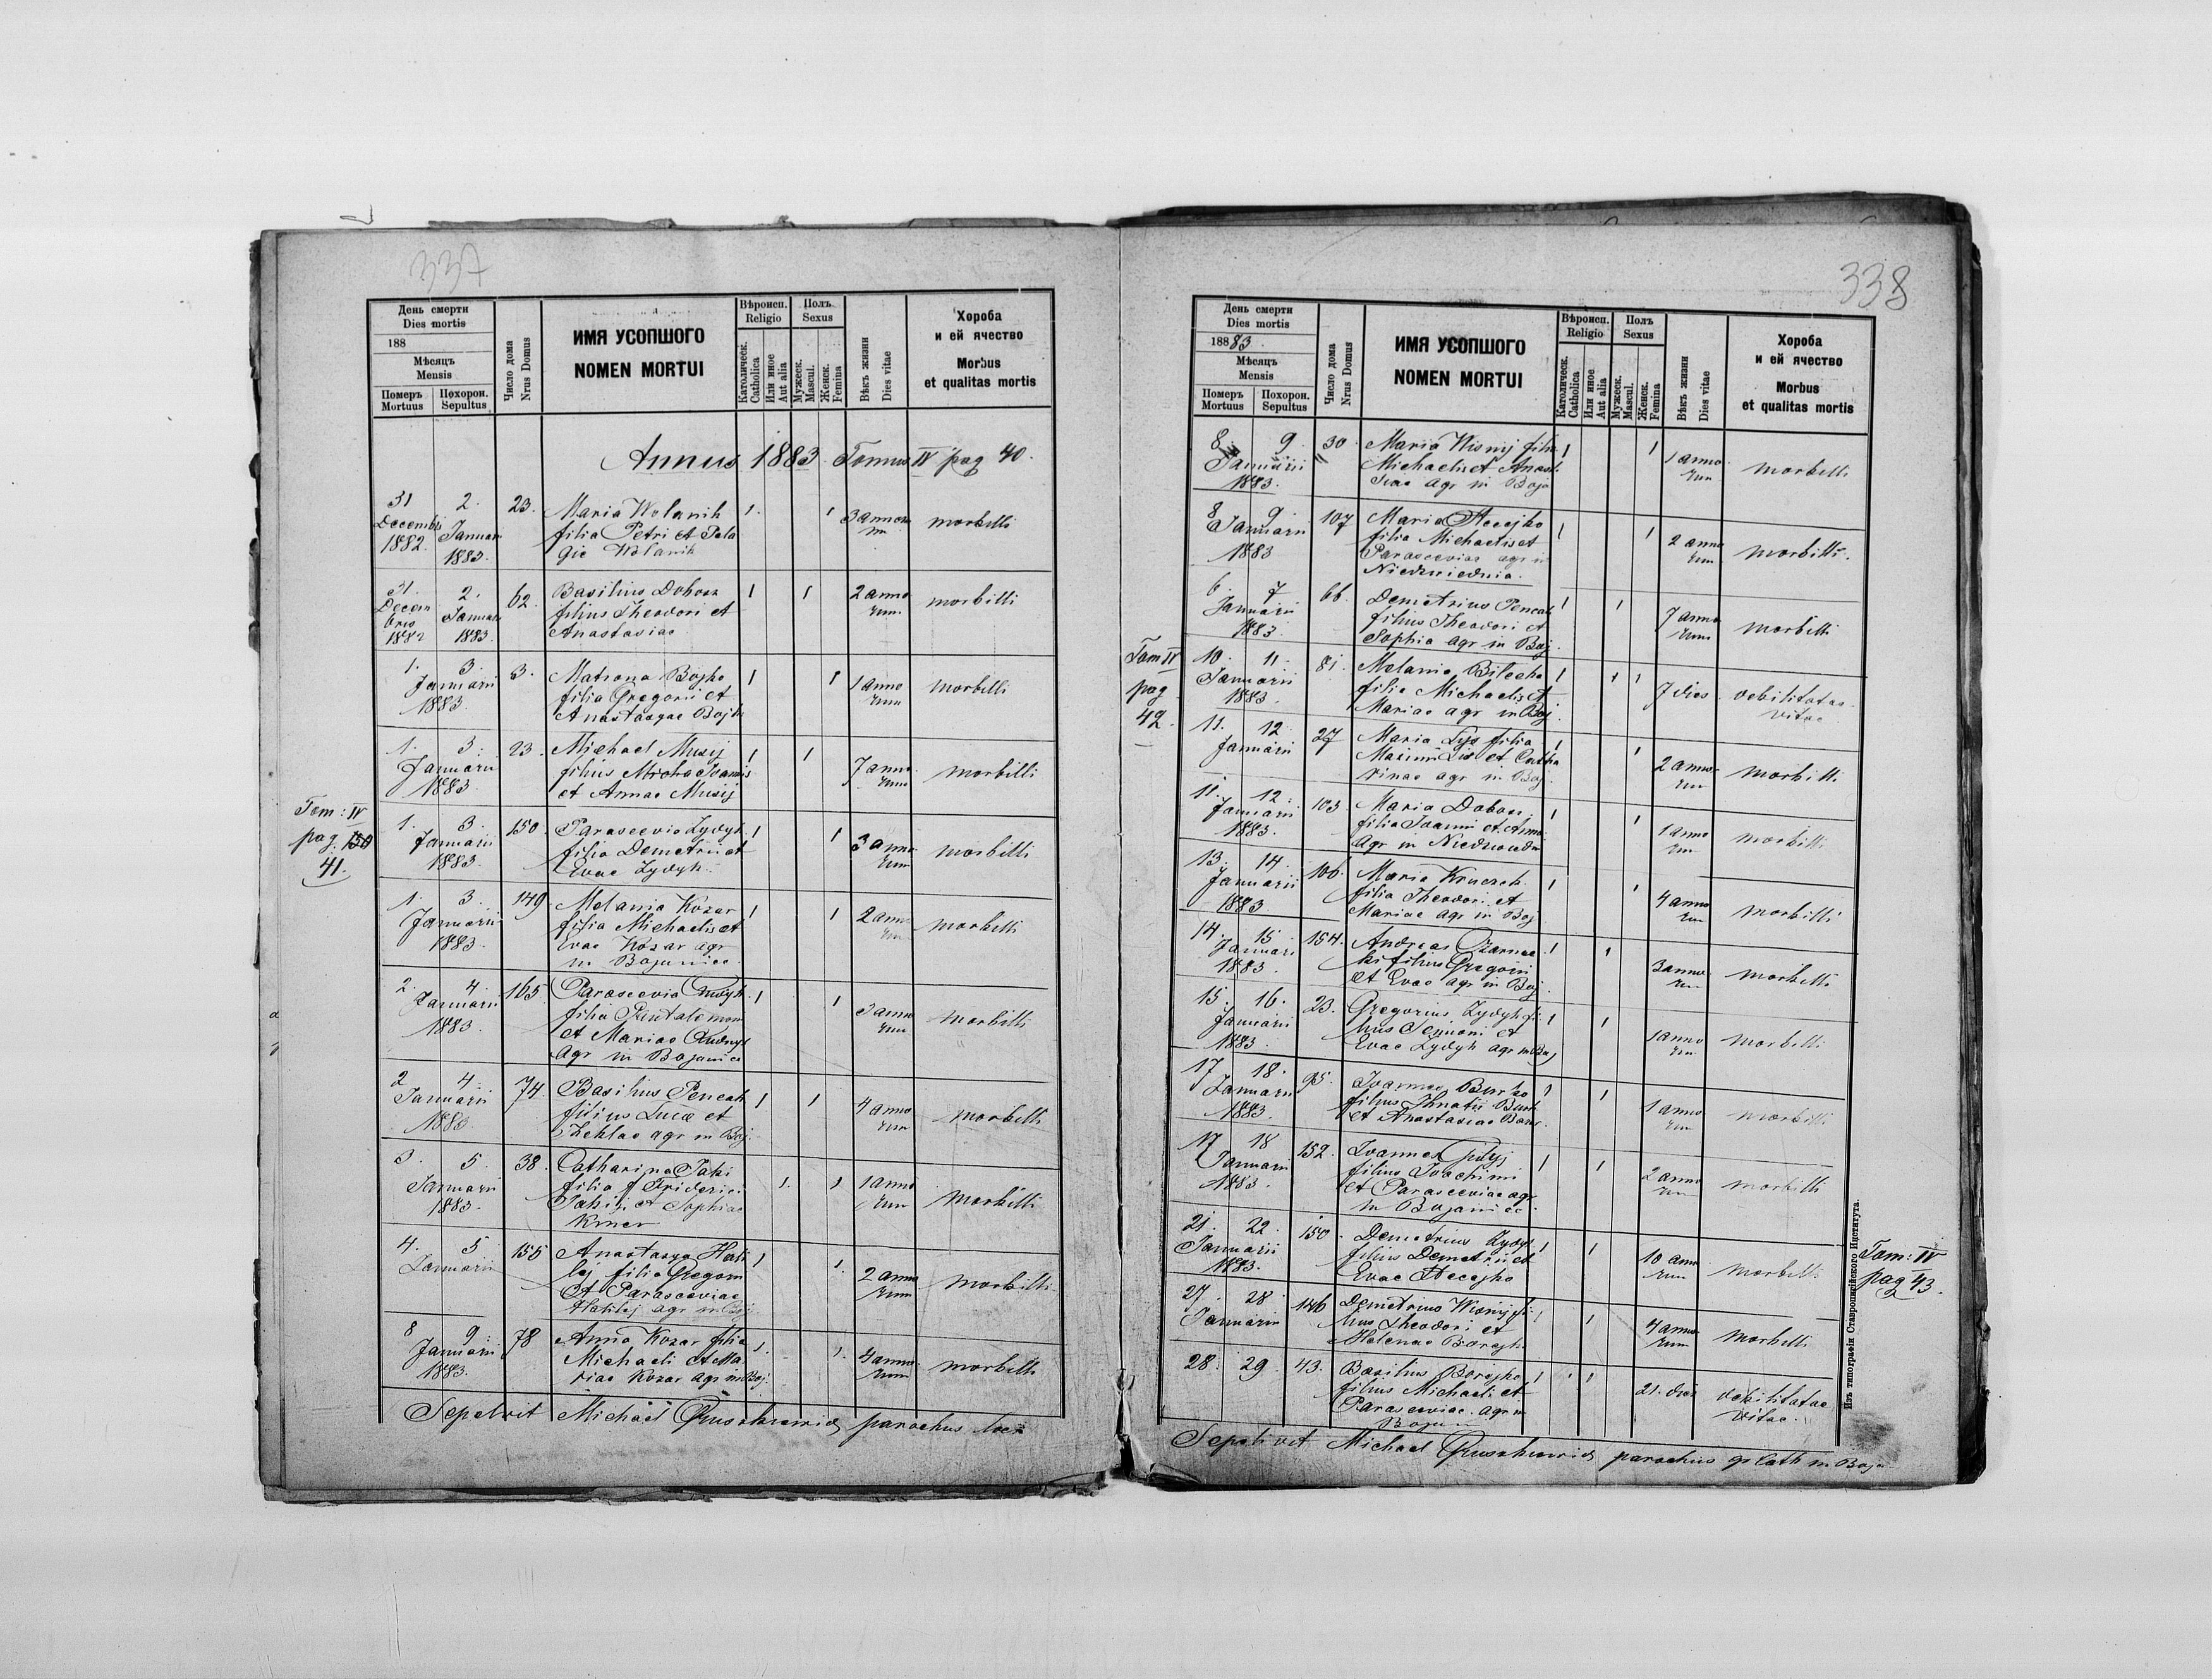 337
День смерти
Dies mortis
188
Мѣсяцъ
Mensis
Померъ Mortuus
Похорон. Sepultus
Число дома
Nrus Domus
ИМЯ УСОПШОГО
NOMEN MORTUI
Вѣроисп.
Religio
Католическ.
Catholica
Или иное
Aut alia
Полъ
Sexus
Мужеск.
Mascul.
Женск.
Femina
Вѣкъ жизни
Dies vitae
Хороба
и ей ячество
Morbus
et qualitas mortis
Annus 1883 Tomus IV pag 40.
31 2. 23. Maria Wolanik 1. 1 3 anno morbilli
Decembris Januarii filia Petri et Pela
1882. 1883. gie Wolanik
31. 2. 62. Basilius Dobosz 1 1 2 anno morbilli
Decem Januarii filius Theodori et rum
bris Anastasiae
1882 1883.
1. 3. 3. Matrona Bojko 1 1 1 anno morbilli
Januarii filia Gregorii et rum
1883. Anastasyae Bojko
1. 3. 23. Michael Musij 1 1 7 anno morbilli
Januarii filius Joannis rum
1883. et Annae Musij
Tom: IV
pag.
41.
1. 3. 150. Parascevia Zydyk 1 1 3 anno morbilli
Januarii filia Demetrii et rum
1883. Evae Zydyk.
1. 3. 149. Melania Kozar 1 1 2 anno morbilli
Januarii filia Michaelis et rum
1883. Evae Kozar agr
in Bojaniec.
2. 4. 165. Parascevia 1 1 3 anno morbilli
Januarii filia Pantalemon rum
1883. et Mariae
agr in Bojaniec
2 4. 74. Basilius Pencak 1 1 4 anno morbilli
Januarii filius Lucae et rum
1883 Theklae agr in Boj.
3. 5. 38. Catharina Jaki 1. 1 1 anno morbilli
Januarii filia Friderici rum
1883. et Sophiae
4. 5 155 Anastasya 1 1. 2 anno morbilli
Januarii filia Gregorii rum
et Parasceviae
agr in Boj.
8 9. 78 Anna Kozar filia 1. 1. 4 anno morbilli
Januarii Michaeli et Ma rum
1883. riae Kozar agr in Boj.
Sepelivit Michael parochus loci
338
День смерти
Dies mortis
188 83.
Мѣсяцъ
Mensis
Померъ Mortuus
Похорон. Sepultus
Число дома
Nrus Domus
ИМЯ УСОПШОГО
NOMEN MORTUI
Вѣроисп.
Religio
Католическ.
Catholica
Или иное
Aut alia
Полъ
Sexus
Мужеск.
Mascul.
Женск.
Femina
Вѣкъ жизни
Dies vitae
Хороба
и ей ячество
Morbus
et qualitas mortis
8 9. 30. Maria Wisnij filia 1 1 1 anno morbilli
Januarii Michaelis et Anast rum
1883. agr in Boja
8 9. 107 Maria Steczko 1 1 2 anno morbilli.
Januarii filia Michaelis et rum
1883 Parasceviae agr in
Niedzwiednia.
6. 7 66. Demetrius Pencak 1 1 7 anno morbilli
Januarii filius Theodori et rum
1883. Sophia agr in Boj.
Tom IV
pag
42.
10. 11. 81. Melania 1 1 1 7 dies debilitatae
Januarii filia Michaelis et vitae
1883. Mariae agr in Boj.
11. 12. 27 Maria Lys filia 1 1 2 anno morbilli
Januarii Maximi Lis et Catha rum
rinae agr in Boj.
11. 12. 103 Maria Dobosz 1 1 1 anno morbilli
Januarii filia Joanni et Anna rum
1883. agr in
13. 14. 106. Maria Kruczek 1 1 4 anno morbilli
Januarii filia Theodori et rum
1883 Mariae agr in Boj
14. 15 154. Andreas Czarnec 1 1 3 anno morbilli
Januarii ki filius Gregorii rum
1883. et Evae agr in Boj.
15. 16. 23. Gregorius Zydyk fi 1 1 1 anno morbilli
Januarii lius et rum
1883. Evae Zydyk agr in Boj
17 18. 95. Joannes Burko 1 1 1 anno morbilli
Januarii filius Ihnatii rum
1883. et Anastasiae
17 18 152. Joannes 1 1 2 anno morbilli
Januarii filius Joachimi rum
1883. et Parasceviae agr
in Bojaniec.
21. 22. 150. Demetrius Zydyk 1 1 10 anno morbilli
Januarii filius Demetrii et rum
1883. Evae Steczko
Tom: IV
pag 43.
27. 28. 146 Demetrius Wisnij fi 1 1 4 anno morbilli
Januarii lius Theodori et rum
Helenae
28. 29. 43. Basilius 1 1 21. dies debilitatae
filius Michaeli et vitae.
Parasceviae agr in
Bojan
Sepelivit Michael parochus gr cath in Bojan
Изъ типографіи Ставропигійского Института.